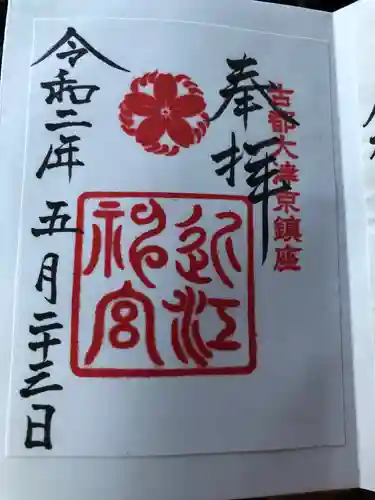 奉拝
古都大津京鎮座
近江
神宮
令和二年五月二十三日